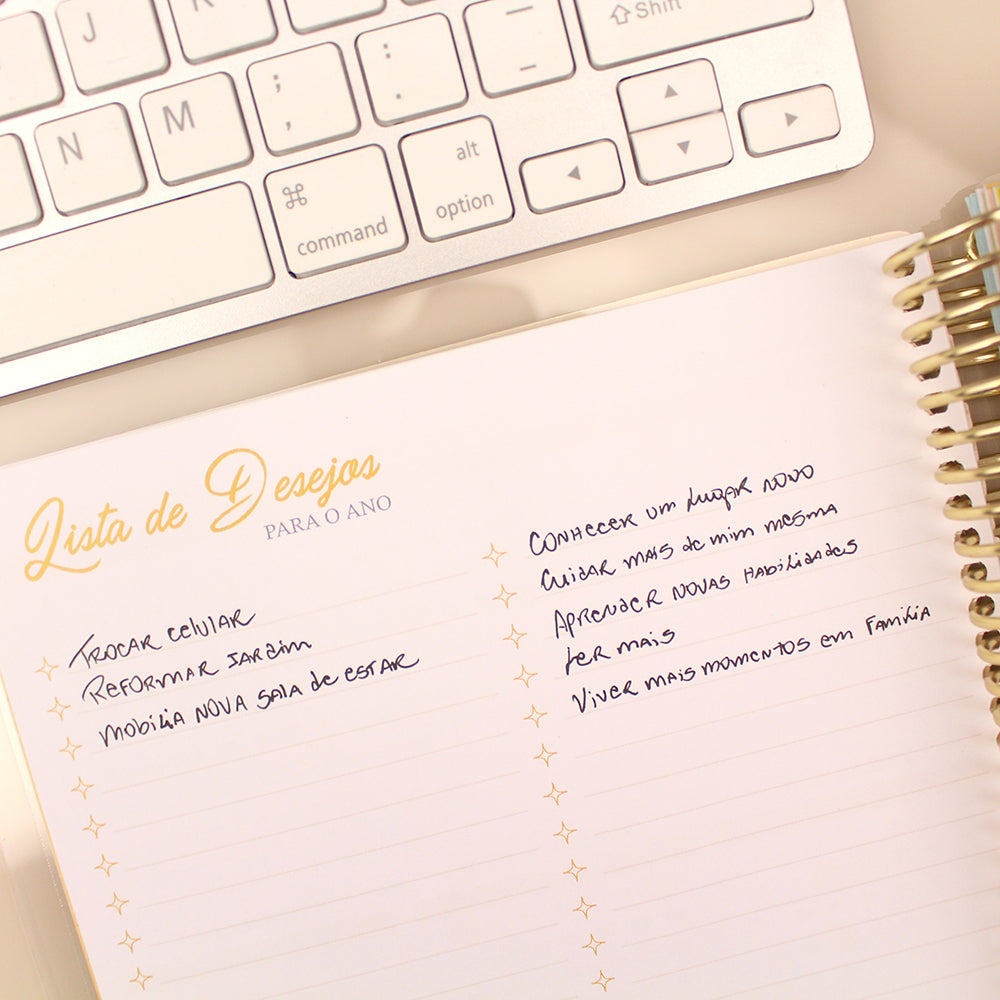 J
K
Shift
N
M
;
,
:
.
_
command
alt
option
Lista de Desejos
PARA O ANO
TROCAR CELULAR
REFORMAR JARDIM
MOBÍLIA NOVA SALA de ESTAR
CONHECER UM LUGAR NOVO
CUIDAR MAIS de mim mesma
APRENDER NOVAS HABILIDADES
LER MAIS
VIVER MAIS MOMENTOS em FAMÍLIA